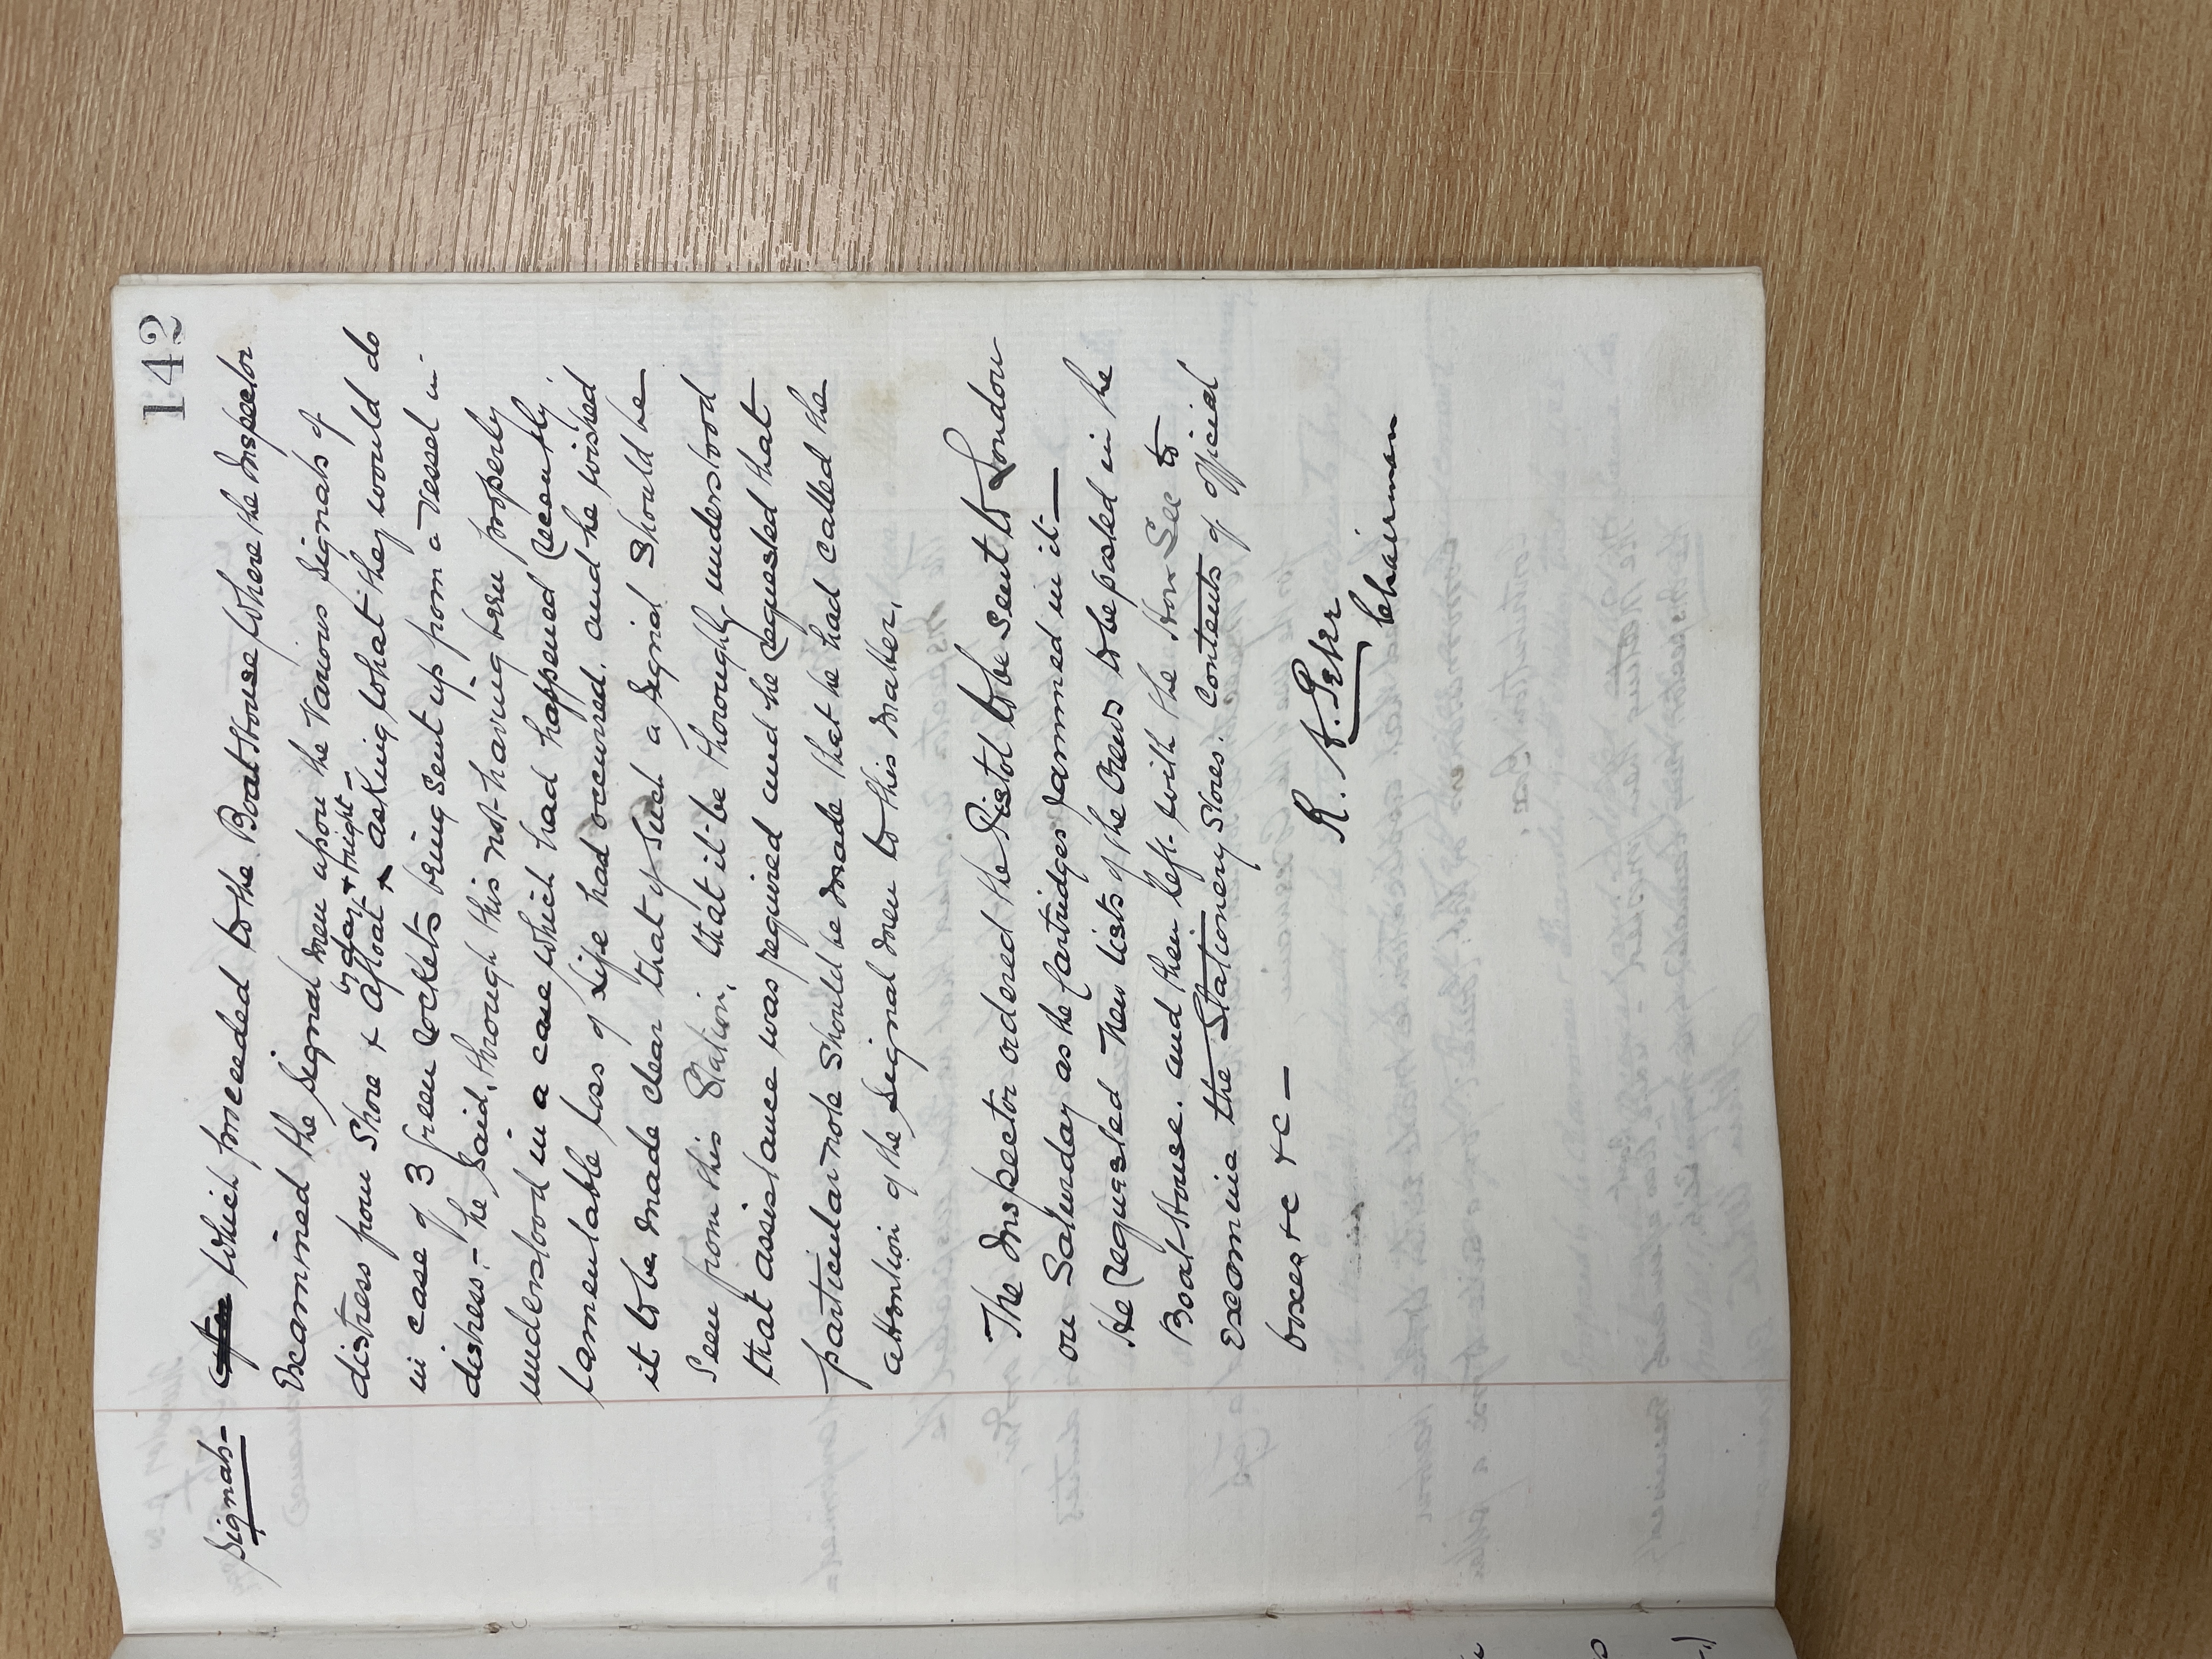 142
Signals –
After which proceeded to the Boat House where the Inspector
Examined the Signal men upon the Various Signals of
by day + night –
distress from Shore + afloat ^ asking what they would do
in case of 3 green rockets being sent up from a vessel in
distress – he said, through this not having been properly
understood in a case which had happened recently
lamentable loss of life had occurred, and he wished
it to be made clear that if such a Signal should be
seen from this Station, that it be thoroughly understood
that assistance was required and he requested that
particular note should be made that he had called the
attention of the Signal men to this matter.
The Inspector ordered the Pistol to be sent to London
on Saturday as the Cartridges jammed in it —
He requested new lists of the Crews to be pasted in the
Boat House. and then left with the Hon Sec to
examine the Stationery Stores. Contents of official
boxes &c &c —
R. A. Peter
Chairman